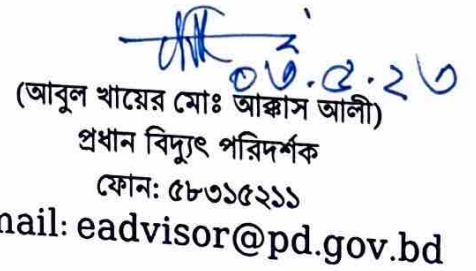 ০৩.৫.২৩
(আবুল খায়ের মোঃ আক্কাস আলী)
প্রধান বিদ্যুৎ পরিদর্শক
ফোন: ৫৮৩১৫২১১
mail: eadvisor@pd.gov.bd